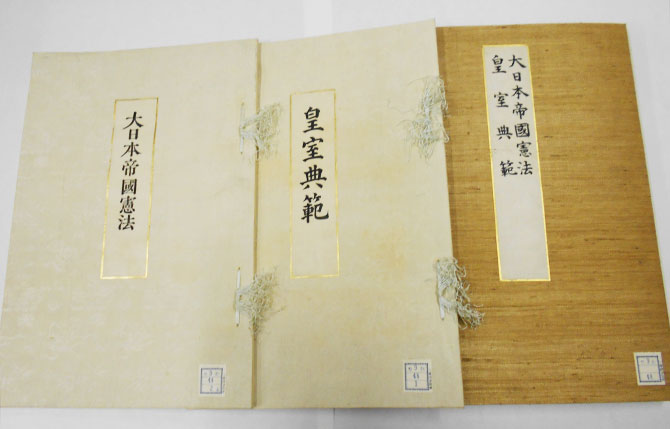 大日本帝國憲法
皇室典範
大日本帝國憲法
皇室典範